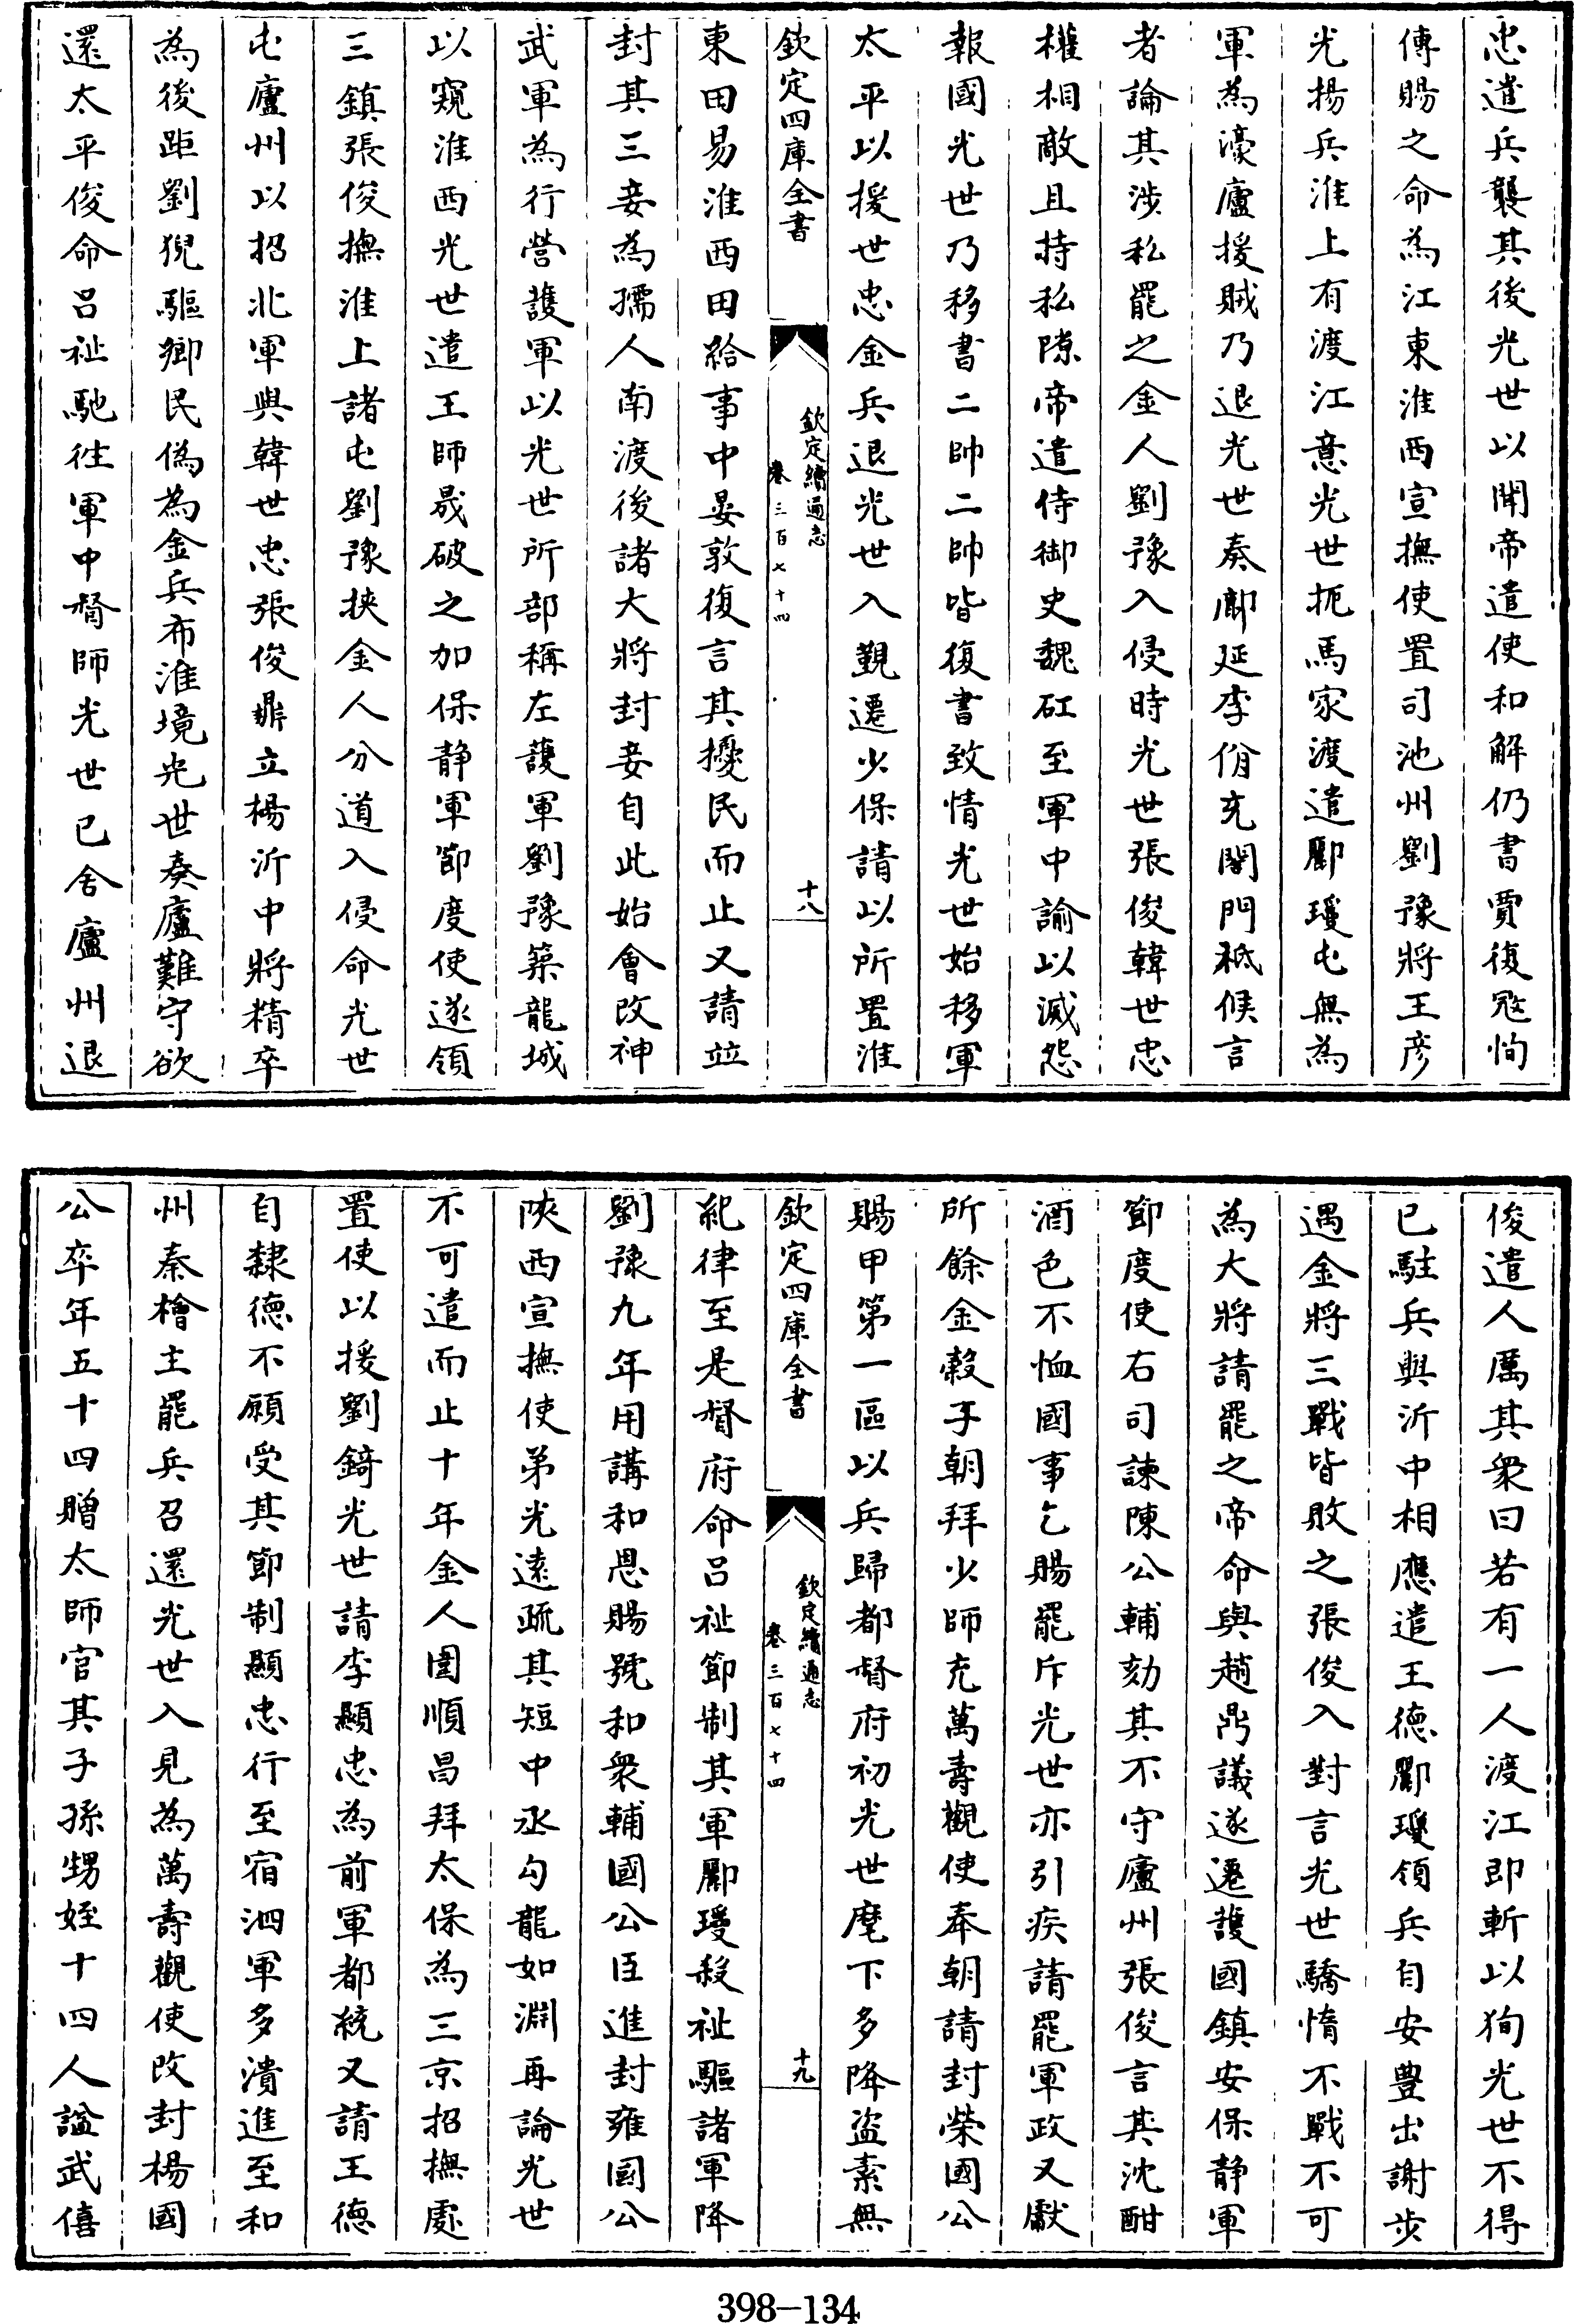 忠遣兵襲其後光世以聞帝遣使和解仍書賈復冦恂
傳賜之命為江東淮西宣撫使置司池州劉豫將王彦
光揚兵淮上有渡江意光世扼馬家渡遣酈瓊屯無為
軍為濠廬援賊乃退光世奏鄜延李佾充閤門祗候言
者論其涉私罷之金人劉豫入侵時光世張俊韓世忠
權相敵且持私隙帝遣侍御史魏矼至軍中諭以滅怨
報國光世乃移書二帥二帥皆復書致情光世始移軍
太平以援世忠金兵退光世入覲遷少保請以所置淮
欽定四庫全書
欽定續通志
卷三百七十四
十八
東田易淮西田給事中晏敦復言其擾民而止又請竝
封其三妾為孺人南渡後諸大將封妾自此始會改神
武軍為行營護軍以光世所部稱左護軍劉豫築龍城
以窺淮西光世遣王師晟破之加保静軍節度使遂領
三鎮張俊撫淮上諸屯劉豫挾金人分道入侵命光世
屯廬州以招北軍與韓世忠張俊鼎立楊沂中將精卒
為後距劉猊驅鄉民偽為金兵布淮境光世奏廬難守欲
還太平俊命呂祉馳往軍中督師光世已舍廬州退
俊遣人厲其衆曰若有一人渡江即斬以狥光世不得
已駐兵與沂中相應遣王德酈瓊領兵自安豐出謝步
遇金將三戰皆敗之張俊入對言光世驕惰不戰不可
為大將請罷之帝命與趙鼎議遂遷護國鎮安保静軍
節度使右司諫陳公輔劾其不守廬州張俊言其沈酣
酒色不恤國事乞賜罷斥光世亦引疾請罷軍政又獻
所餘金榖于朝拜少師充萬壽觀使奉朝請封榮國公
賜甲第一區以兵歸都督府初光世麾下多降盜素無
欽定四庫全書
欽定續通志
卷三百七十四
十九
紀律至是督府命呂祉節制其軍酈瓊殺祉驅諸軍降
劉豫九年用講和恩賜號和衆輔國公臣進封雍國公
陜西宣撫使弟光遠疏其短中丞勾龍如淵再論光世
不可遣而止十年金人圍順昌拜太保為三京招撫處
置使以援劉錡光世請李顯忠為前軍都統又請王德
自隸德不願受其節制顯忠行至宿泗軍多潰進至和
州秦檜主罷兵召還光世入見為萬壽觀使改封楊國
公卒年五十四贈太師官其子孫甥姪十四人諡武僖
398-134